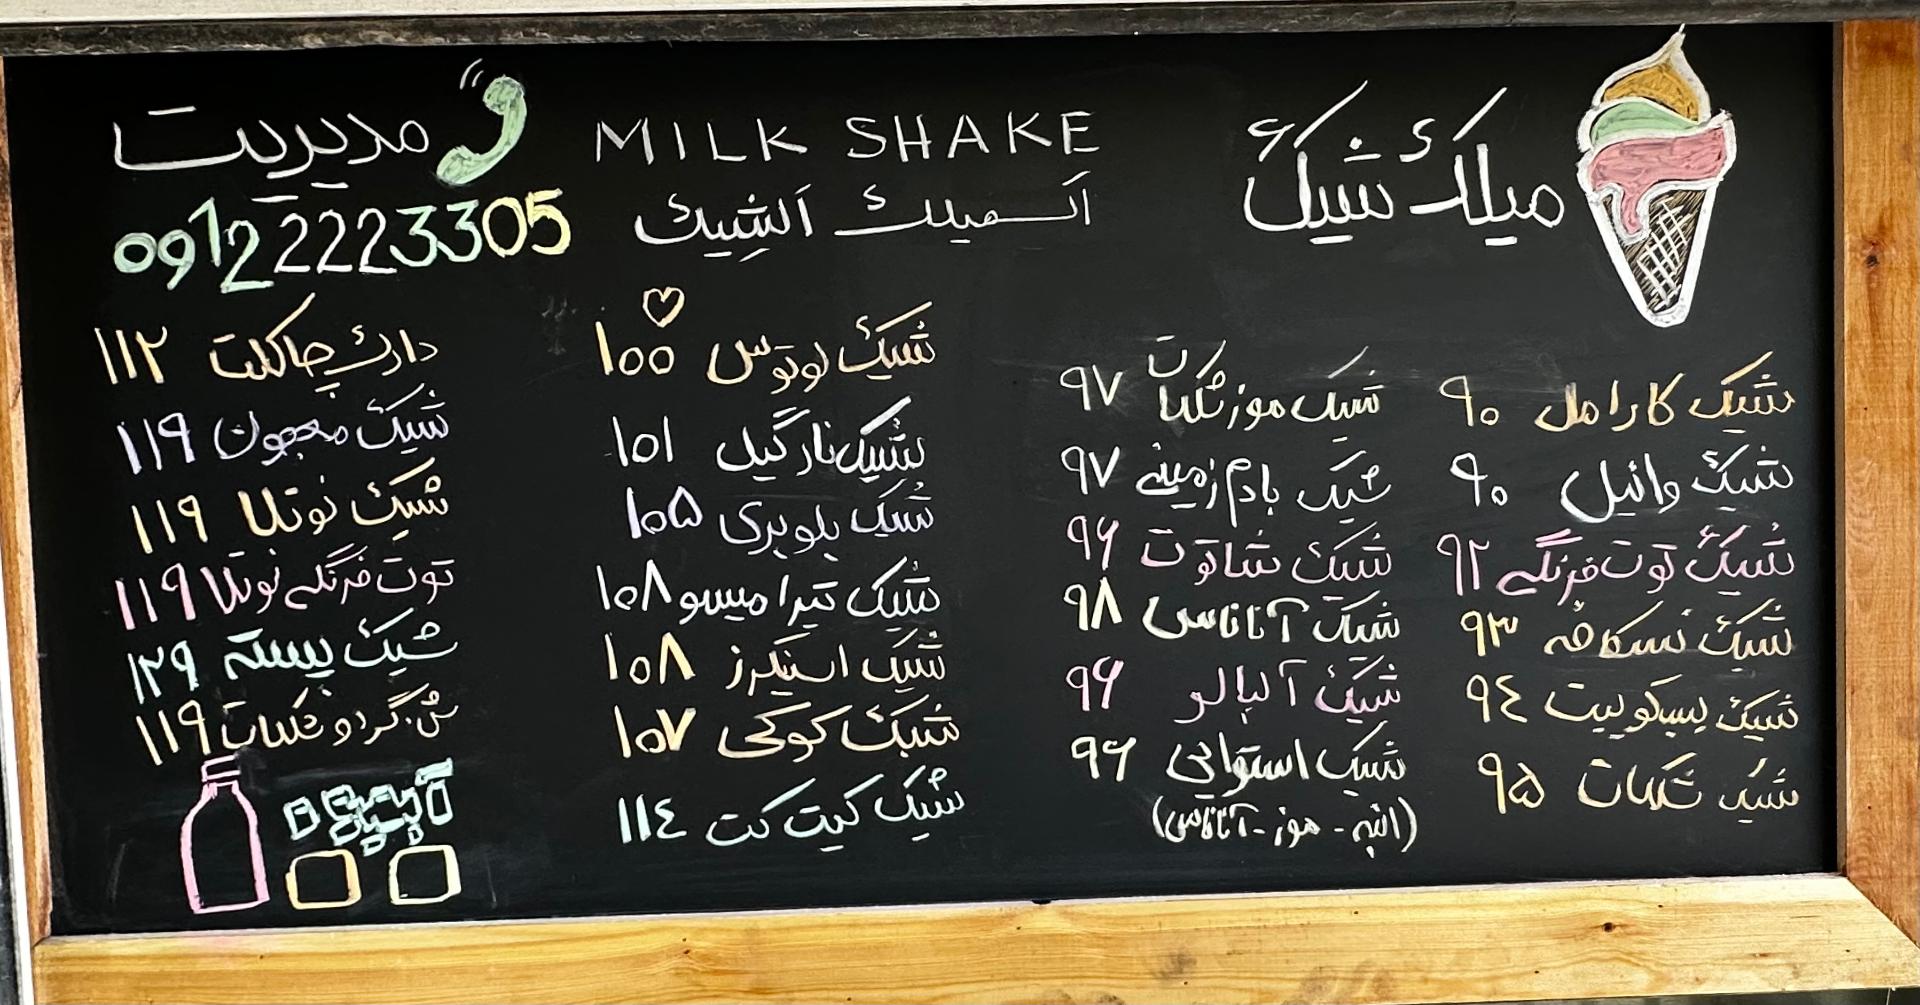 میلک شیک
شیک کارامل ۹۰
شیک وانیل ۹۰
شیک توت فرنگی ۹۲
شیک نسکافه ۹۳
شیک بیسکوییت ۹٤
شیک شکلات ۹۵
شیک موز شکلات ۹۷
شیک بادام زمینی ۹۷
شیک شاتوت ۹۶
شیک آناناس ۹۸
شیک آلبالو ۹۶
شیک استوایی ۹۶
(انبه - موز - آناناس)
MILK SHAKE
اَلـمیلك اَلشِیك
شیک لوتوس ۱۰۰
شیک نارگیل ۱۰۱
شیک بلوبری ۱۰۵
شیک تیرامیسو ۱۰۸
شیک اسنیکرز ۱۰۸
شیک کوکی ۱۰۷
شیک کیت کت ۱۱٤
مدیریت
09122223305
دارک چاکلت ۱۱۲
شیک معجون ۱۱۹
شیک نوتلا ۱۱۹
توت فرنگی نوتلا ۱۱۹
شیک پسته ۱۲۹
ش. گردو شکلات ۱۱۹